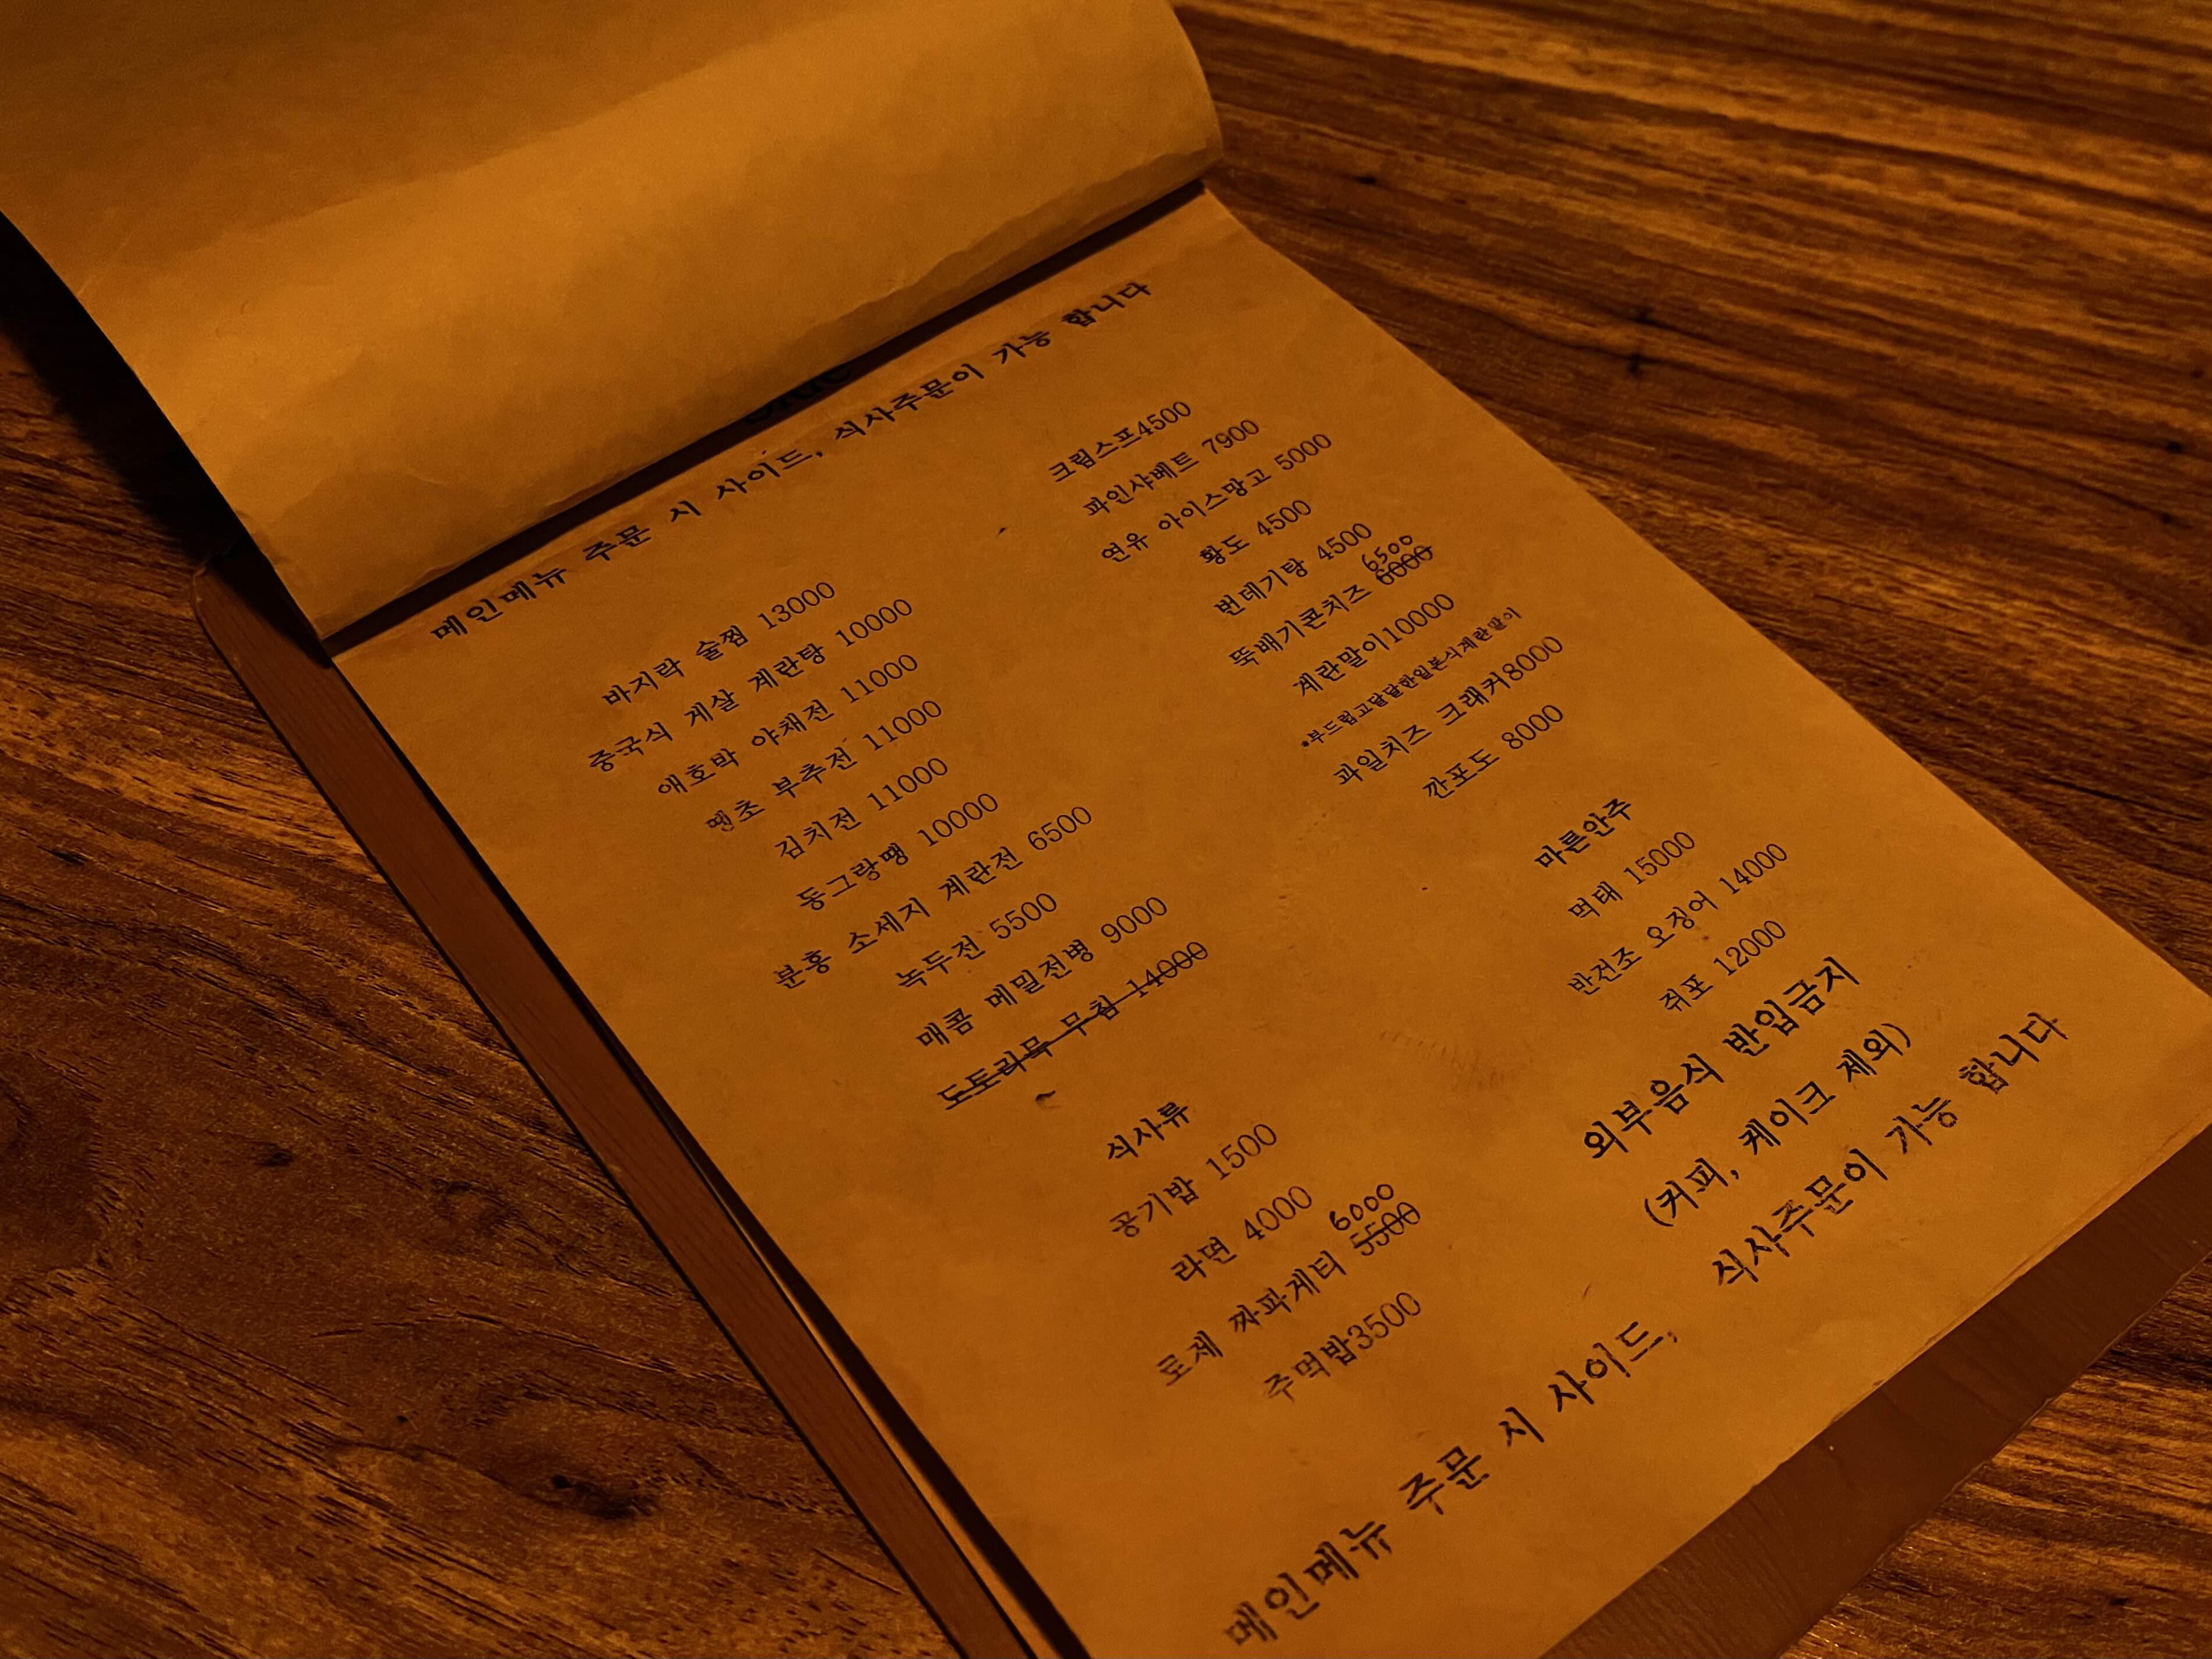 메인메뉴 주문 시 사이드, 식사주문이 가능 합니다
바지락 술찜 13000
중국식 게살 계란탕 10000
애호박 야채전 11000
땡초 부추전 11000
김치전 11000
동그랑땡 10000
분홍 소세지 계란전 6500
녹두전 5500
매콤 메밀전병 9000
도토리묵 무침 14000
식사류
공기밥 1500
라면 4000
6000
로제 짜파게티 5500
주먹밥3500
크림스프4500
파인샤베트 7900
연유 아이스망고 5000
황도 4500
번데기탕 4500
6500
뚝배기콘치즈 6000
계란말이10000
*부드럽고달달한일본식계란말이
과일치즈 크래커8000
깐포도 8000
마른안주
먹태 15000
반건조 오징어 14000
쥐포 12000
외부음식 반입금지
(커피, 케이크 제외)
메인메뉴 주문 시 사이드, 식사주문이 가능 합니다